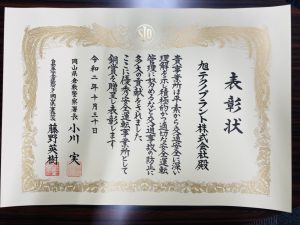 表彰状
旭テクノプラント株式会社殿
貴事業所は平素から交通安全に深い
理解を示され積極的かつ適切な安全運転
管理に努めるなど交通事故の防止に
多大の貢献をされました
ここに優秀安全運転事業所として
銅賞を贈呈し表彰します
令和二年十月三十日
岡山県倉敷警察署長
小川 実
藤野英樹